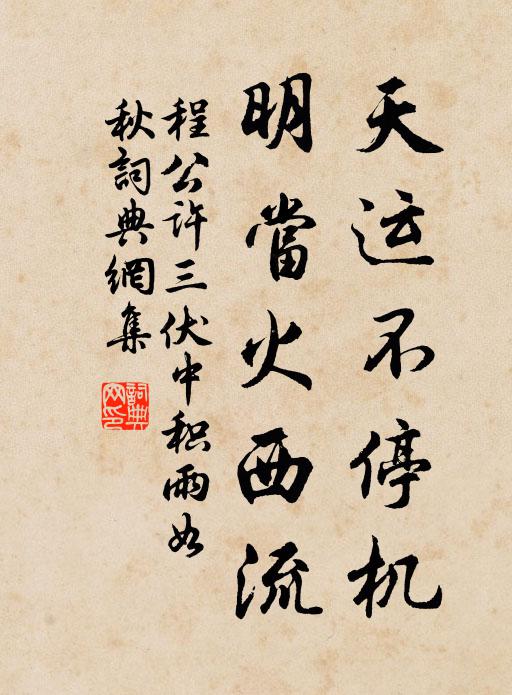 天运不停机
明當火西流
程公许三伏中积雨如
秋詞典網集
詞典
网印